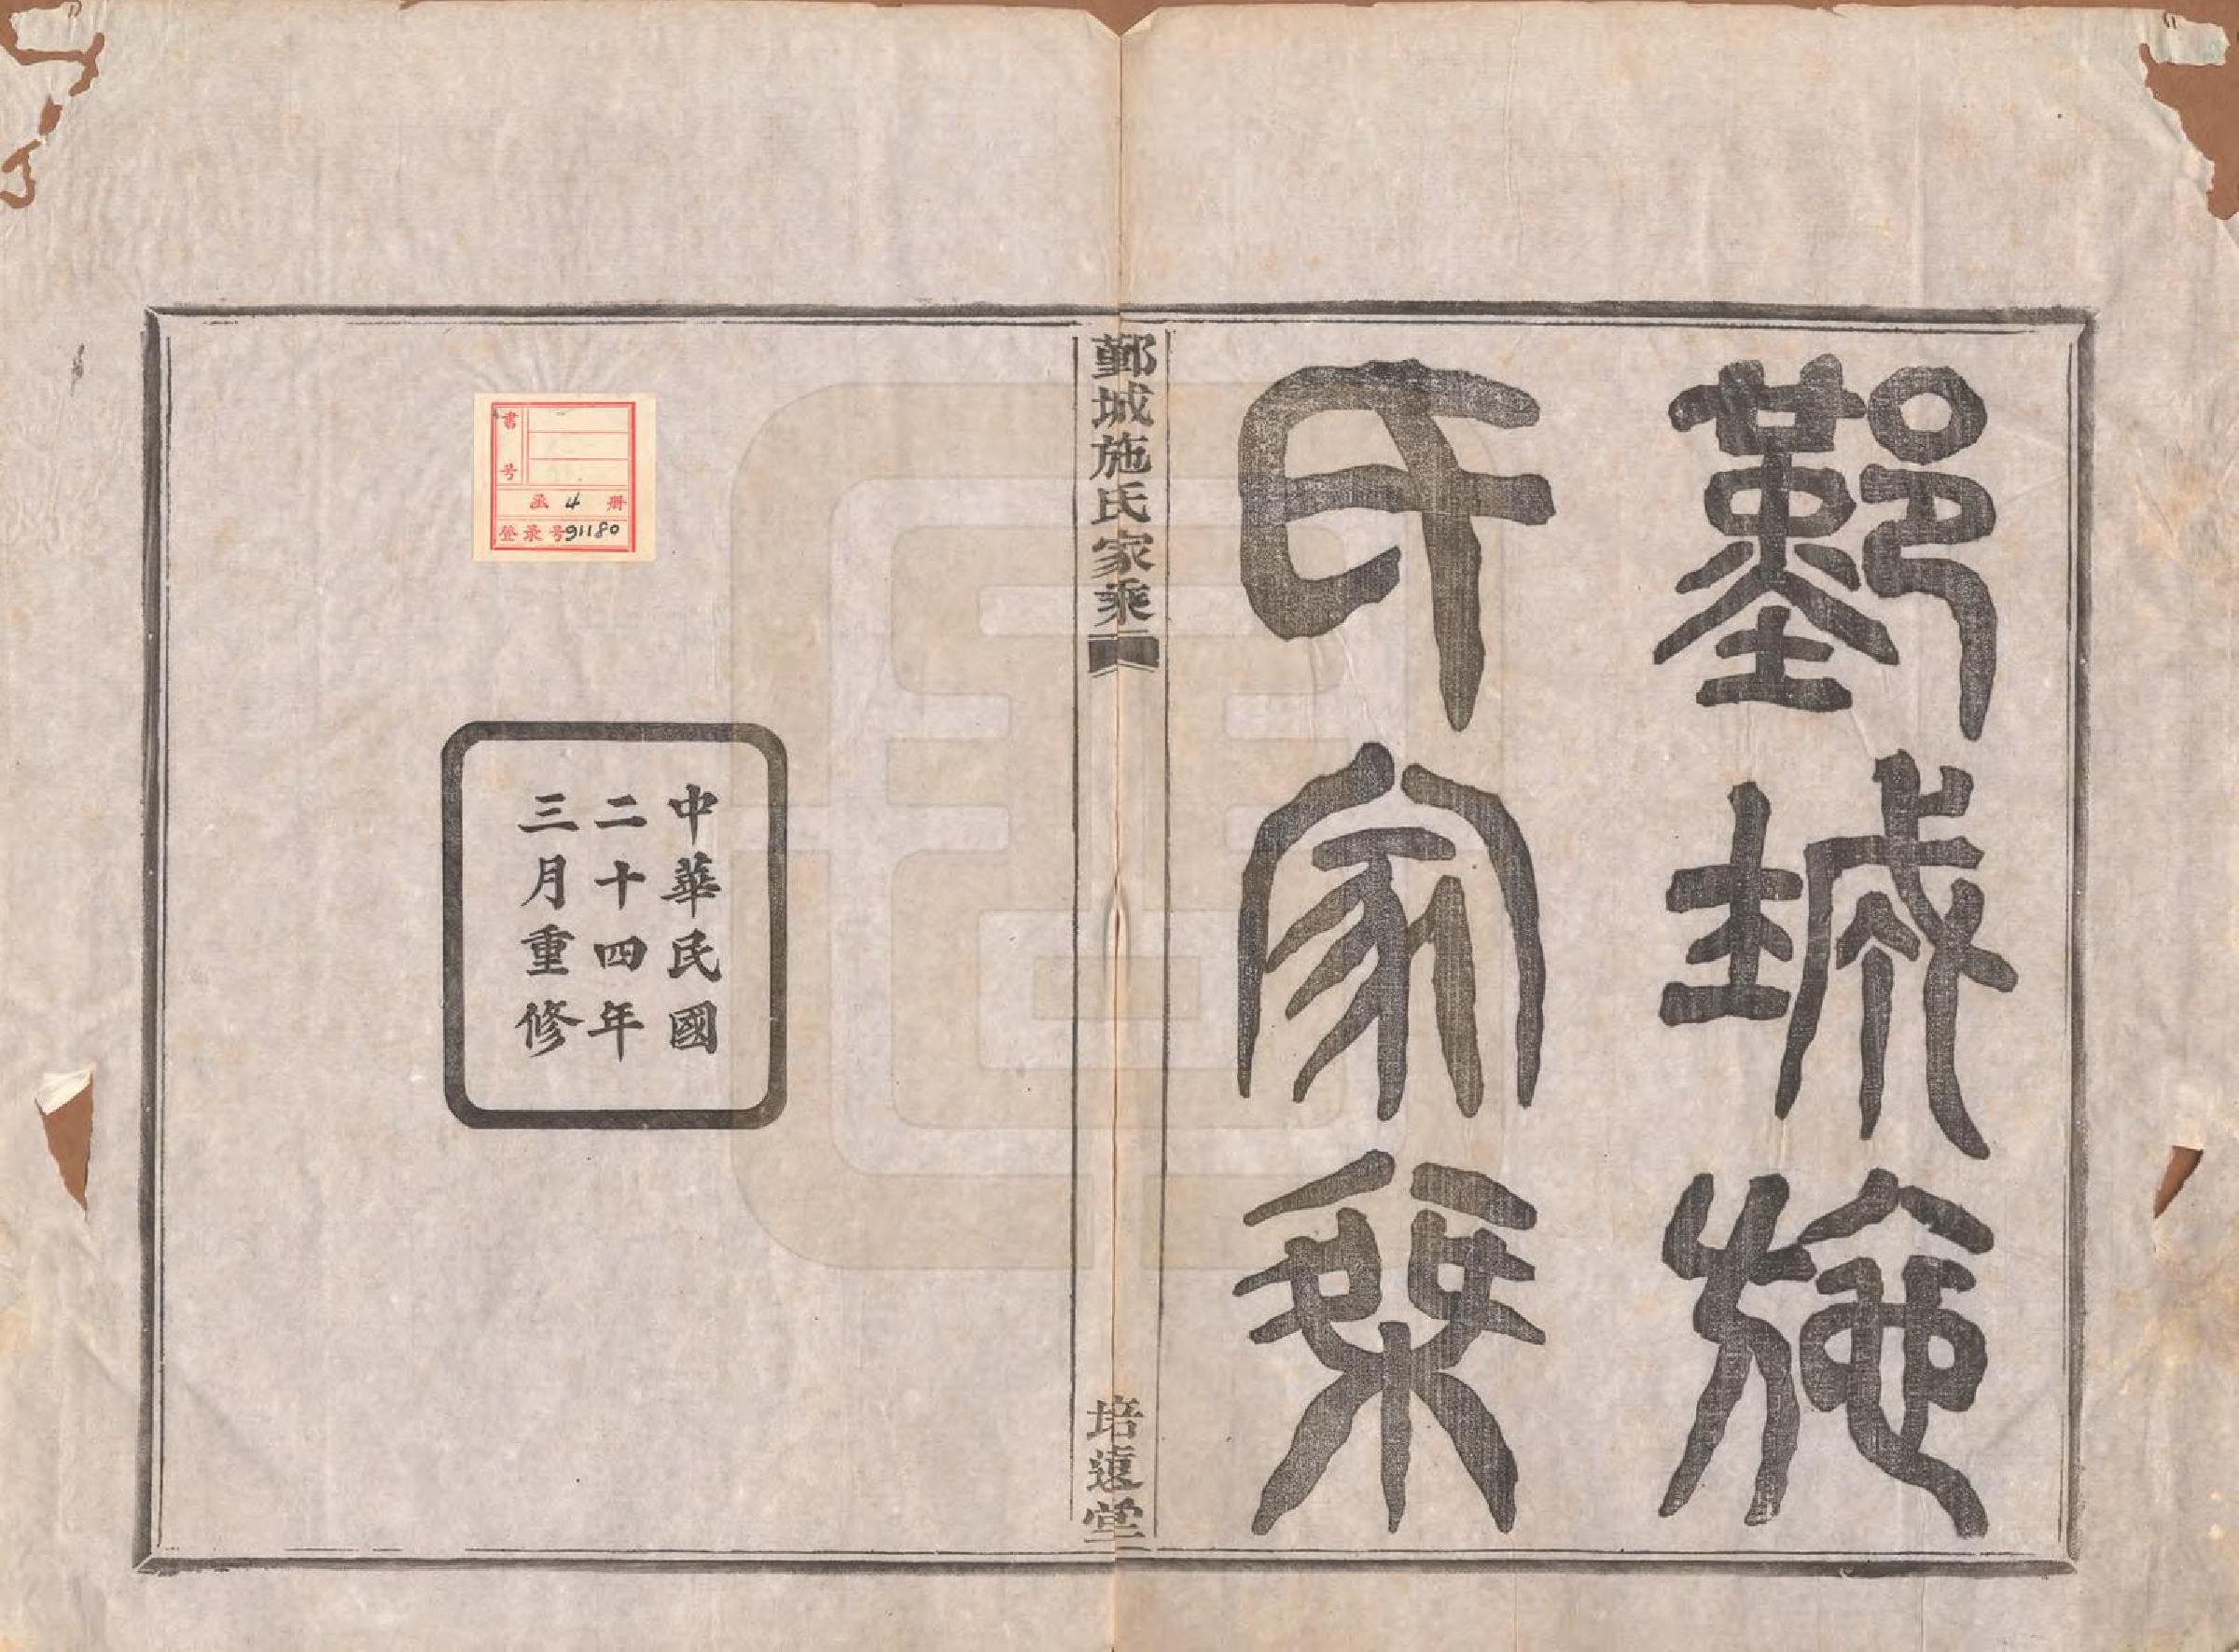 鄞城施
氏家乘
鄞城施氏家乘
培遠堂
中華民國
二十四年
三月重修
書号
函 4 册
登录号91180